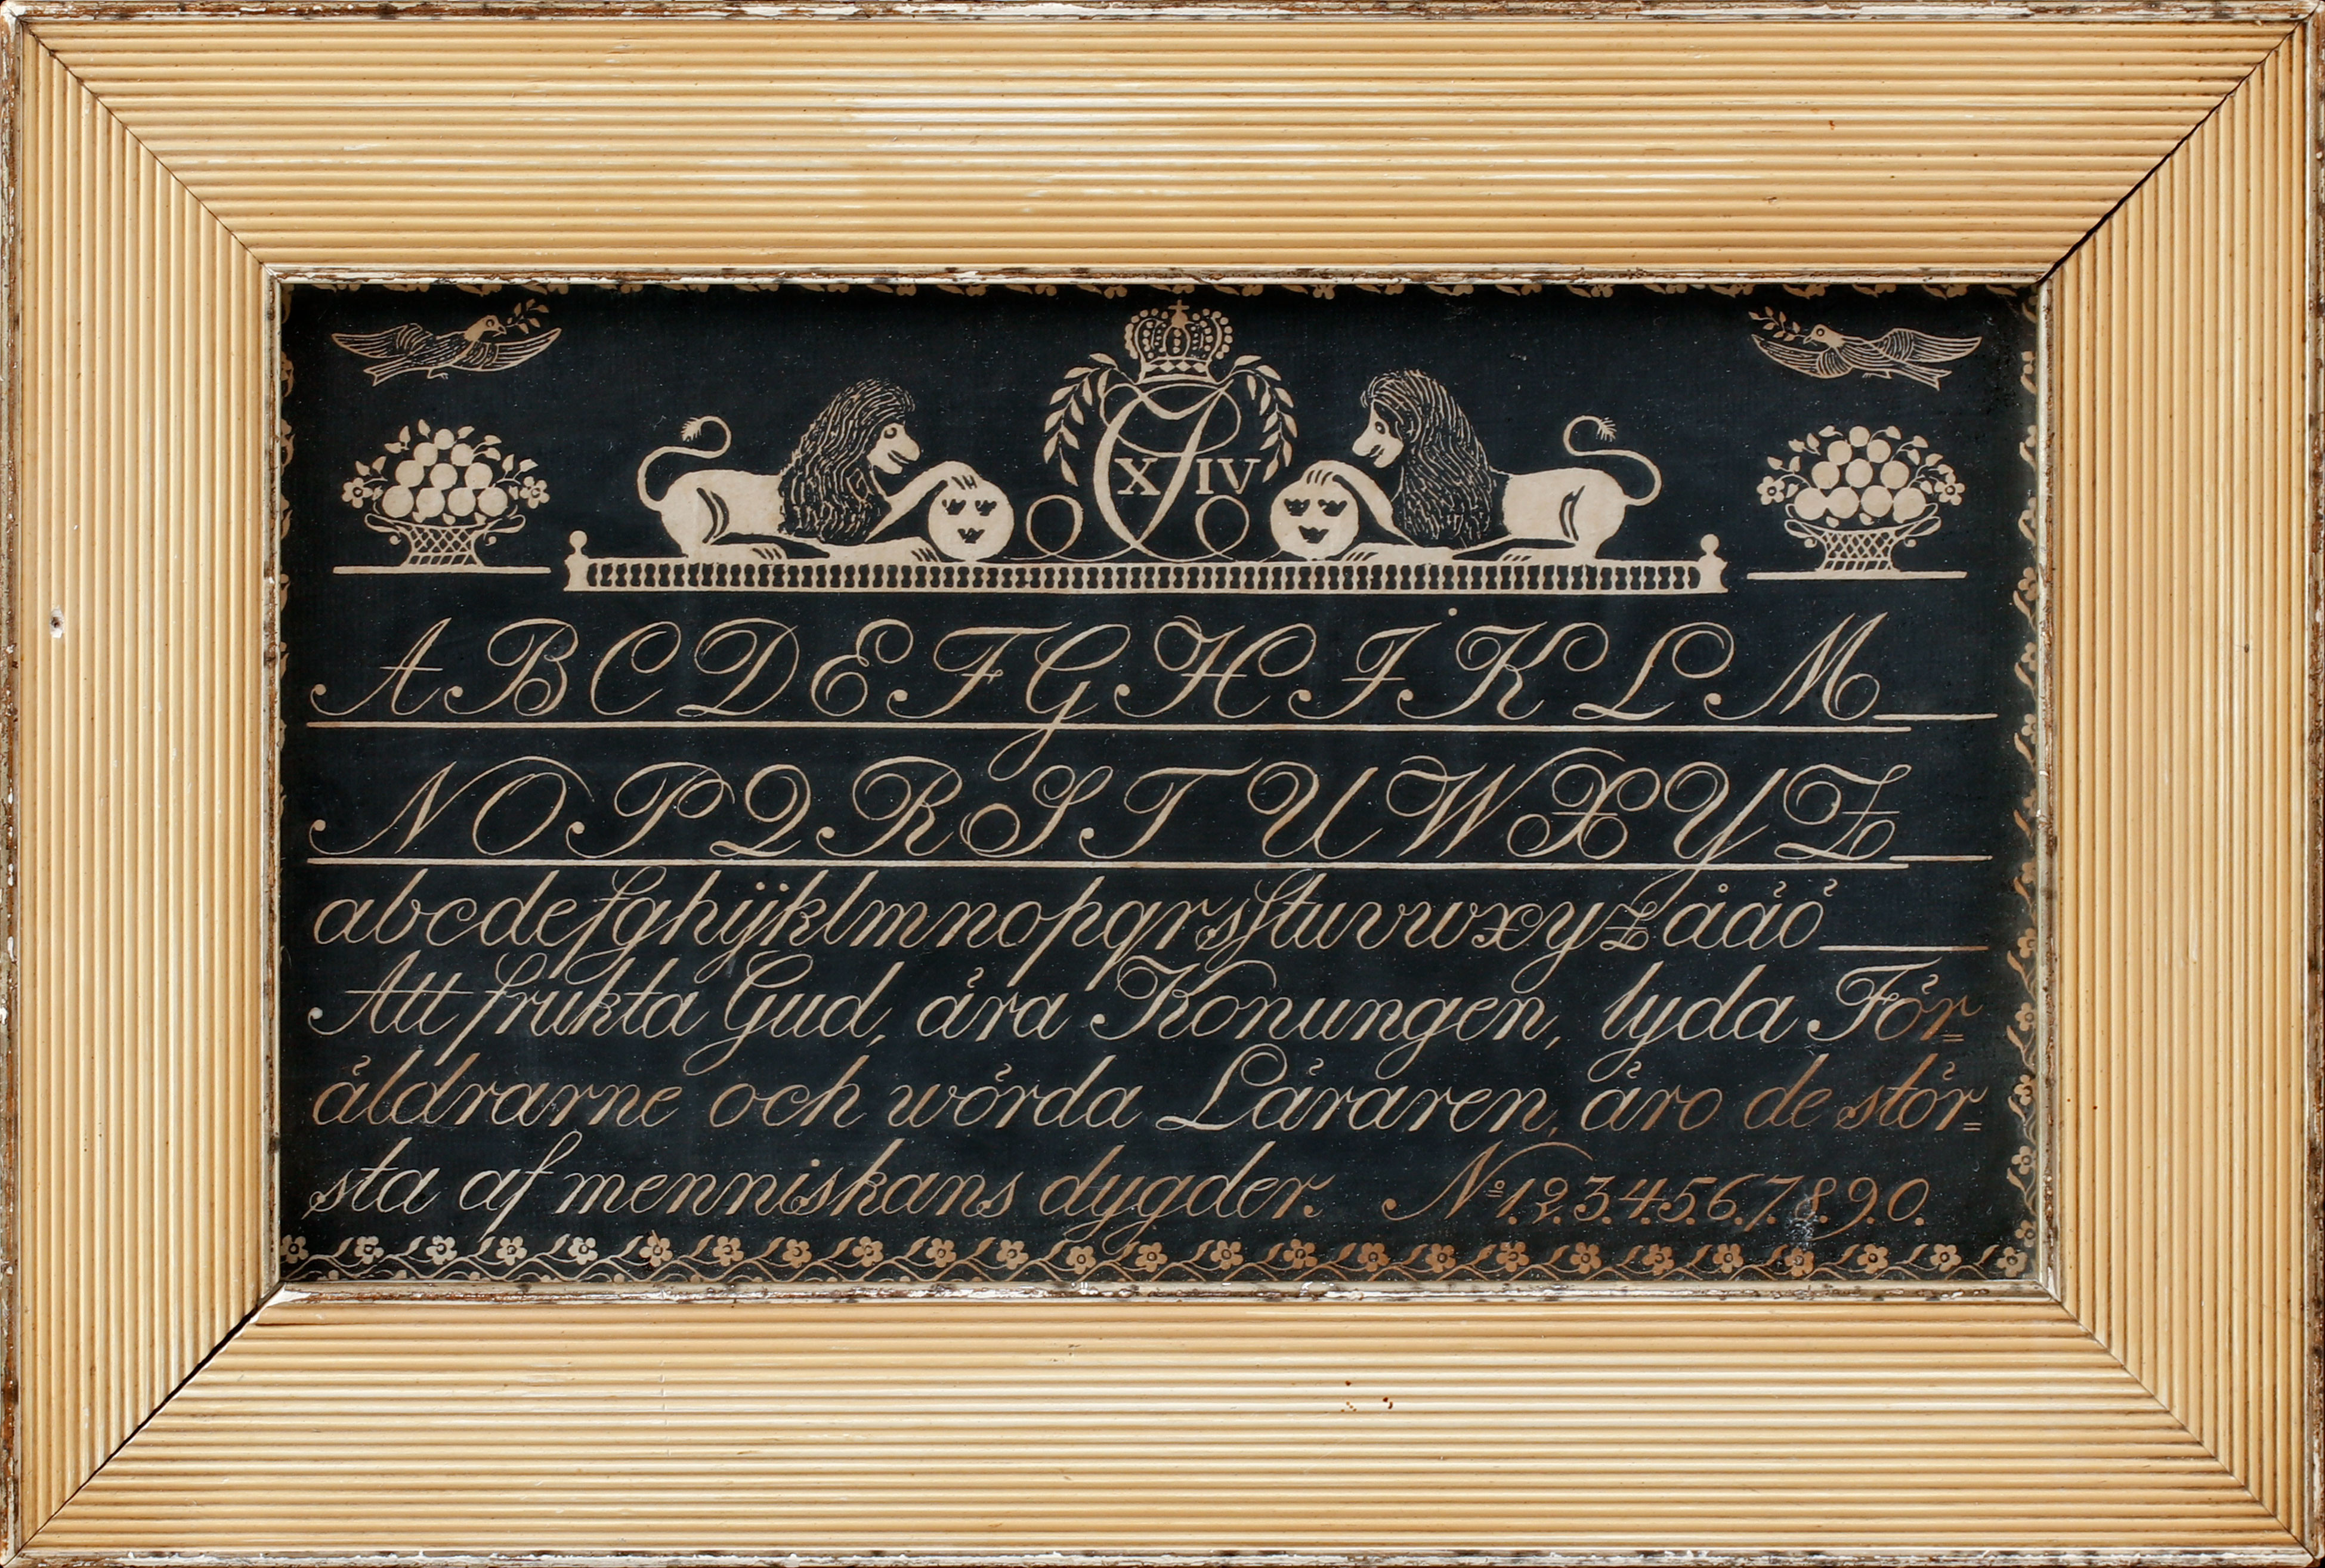 CJ XIV
A B C D E F G H I K L M
N O P Q R S T U W X Y Z
abcdefghijklmnopqrsſstuvwxyzåäö
Att frukta Gud, ära Konungen, lyda För=
äldrarne och wörda Läraren, äro de stör=
sta af menniskans dygder. No. 1.2.3.4.5.6.7.8.9.0.